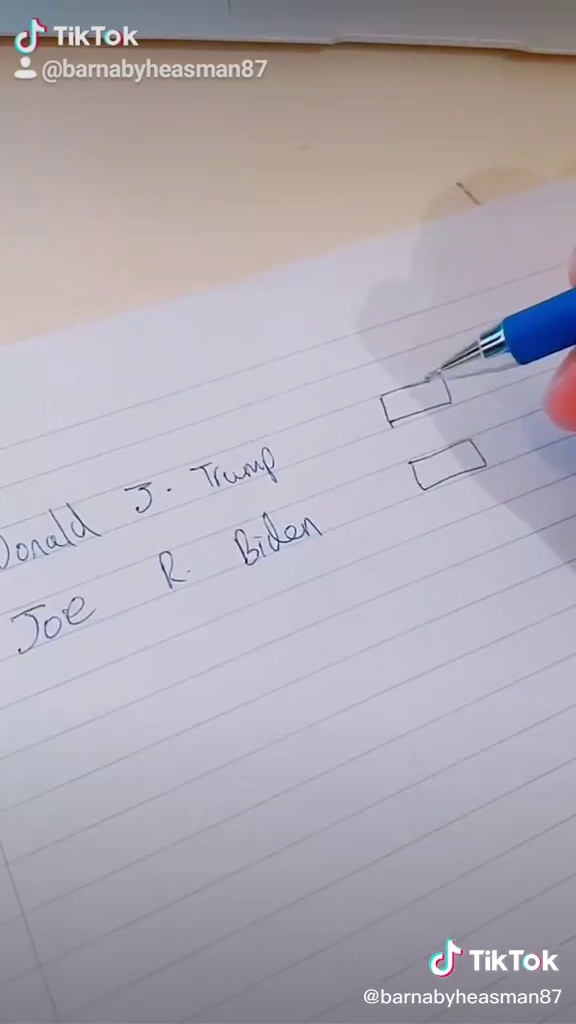 TikTok
@barnabyheasman87
Donald J. Trump
Joe R. Biden
TikTok
@barnabyheasman87